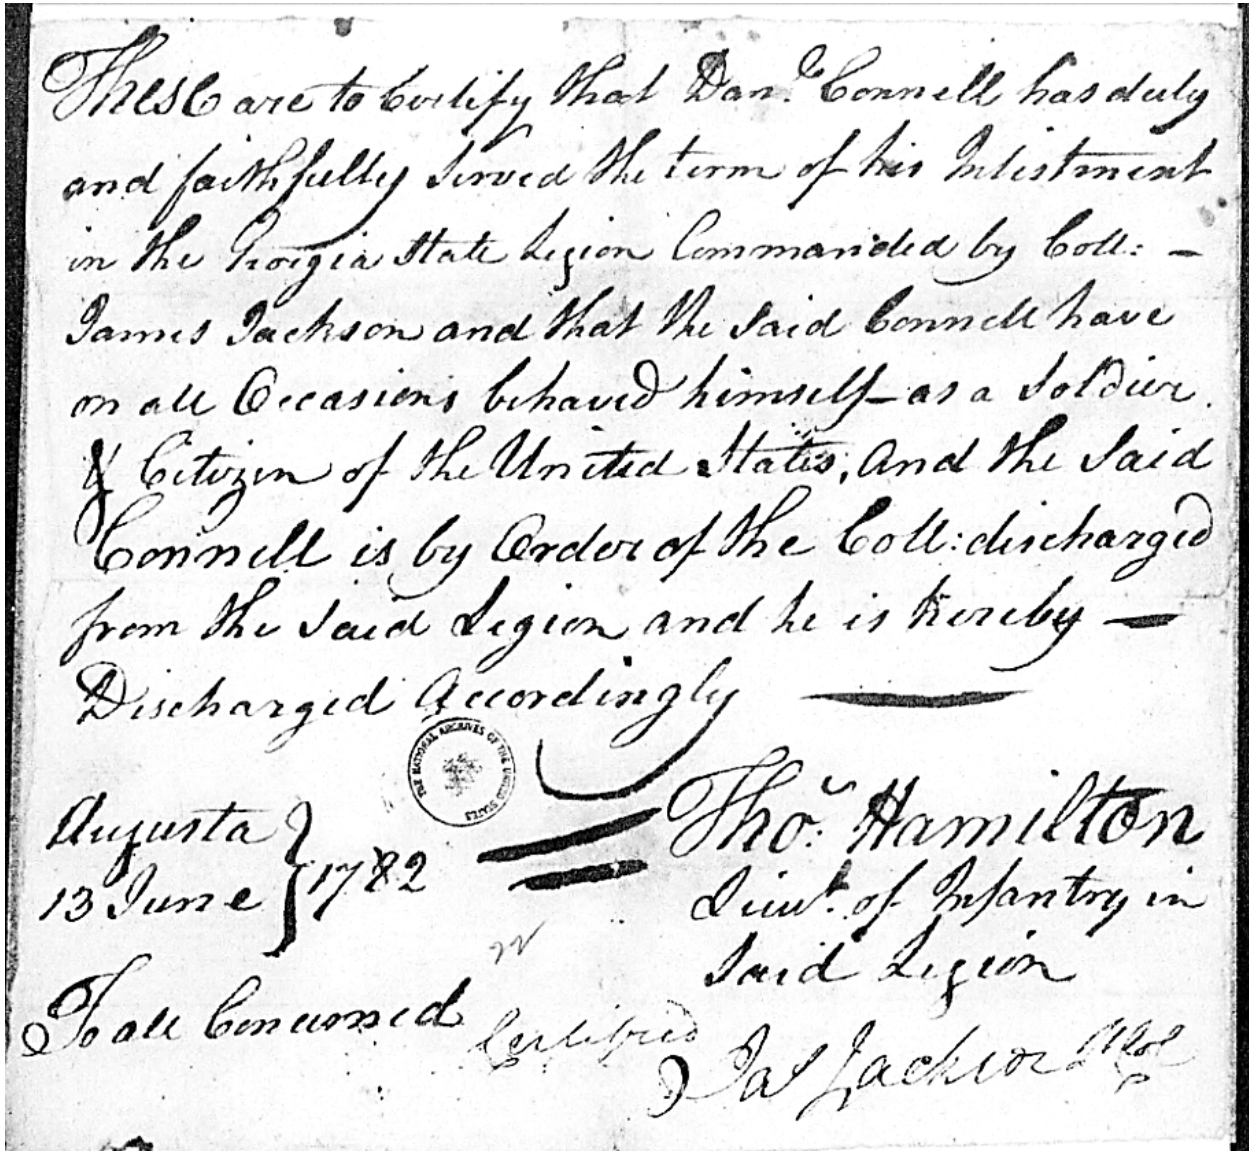 These are to Certify that Dan.l Connell has duly
and faithfully Served the term of his Inlistment
in the Georgia State Legion Commanded by Coll: –
James Jackson and that the Said Connell have
on all Occasions behaved himself as a Soldier
& Citizen of the United States, And the Said
Connell is by Order of the Coll: discharged
from the Said Legion and he is hereby —
Discharged Accordingly —
THE NATIONAL ARCHIVES OF THE UNITED STATES
Augusta
13 June } 1782
Tho.s Hamilton
Lieut. of Infantry in
Said Legion
To all Concerned
Certified
Jas Jackson